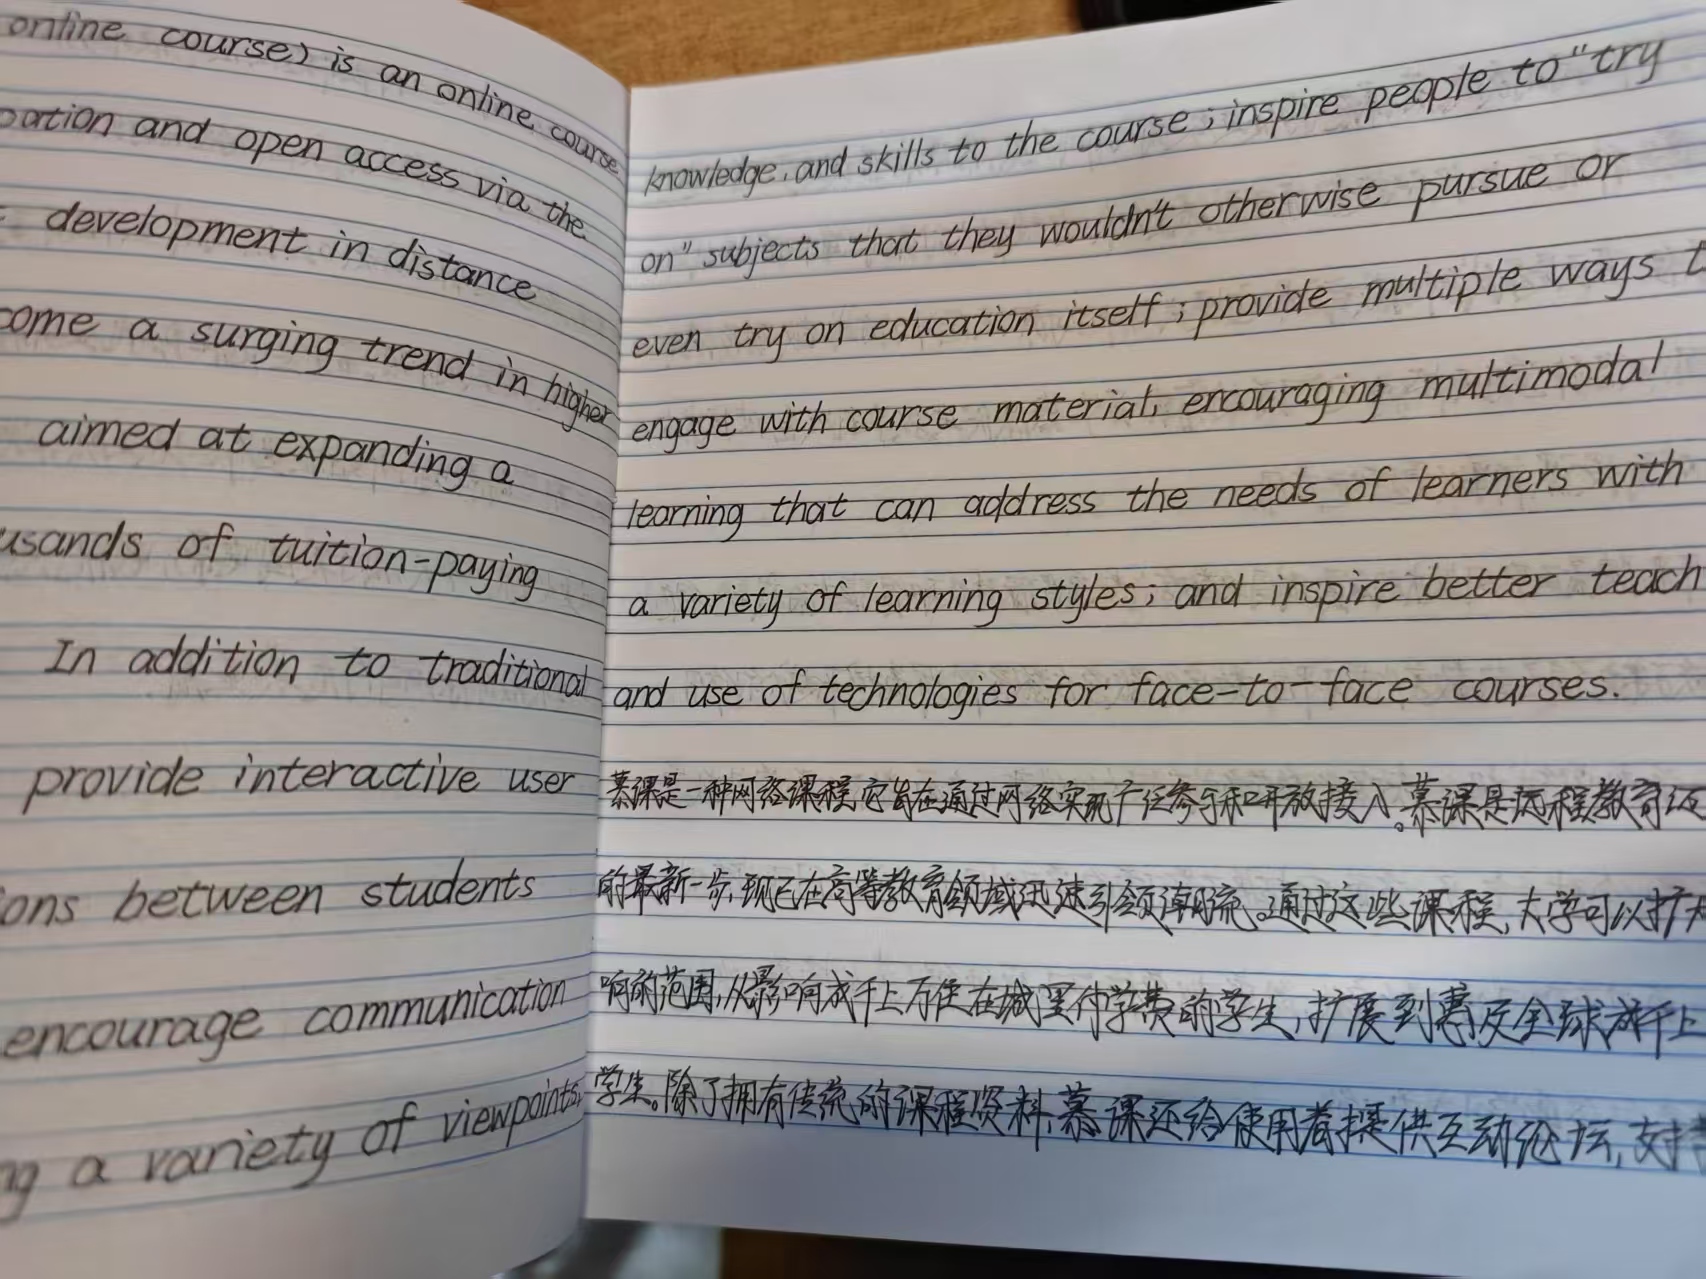 online course) is an online course
pation and open access via the
development in distance
come a surging trend in higher
aimed at expanding a
usands of tuition-paying
In addition to traditional
provide interactive user
ons between students
encourage communication
ng a variety of viewpoints,
knowledge, and skills to the course; inspire people to "try
on" subjects that they wouldn't otherwise pursue or
even try on education itself; provide multiple ways t
engage with course material, encouraging multimodal
learning that can address the needs of learners with
a variety of learning styles; and inspire better teach
and use of technologies for face-to-face courses.
慕课是一种网络课程,它旨在通过网络实现广泛参与和开放接入。慕课是远程教育迈
的最新一步,现已在高等教育领域迅速引领潮流。通过这些课程,大学可以扩大
响的范围,从影响成千上万住在城里付学费的学生,扩展到惠及全球成千上
学生。除了拥有传统的课程资料,慕课还给使用者提供互动论坛,支持